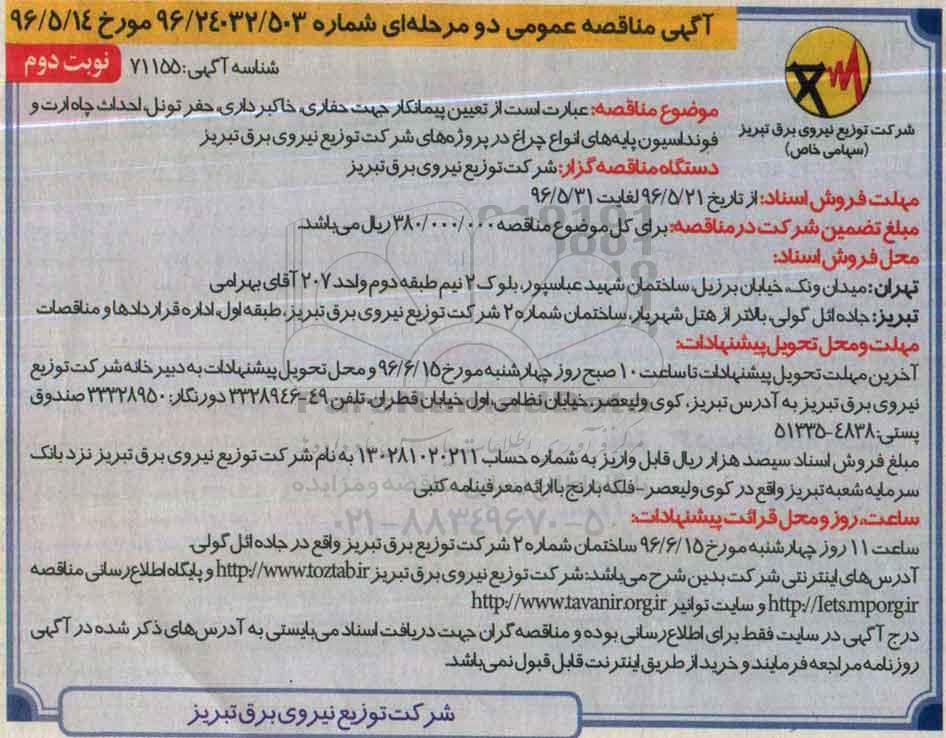 آگهی مناقصه عمومی دو مرحله‌ای شماره ۹۶/۲۴۰۳۲/۵۰۳ مورخ ۹۶/۵/۱۴
شناسه آگهی: ۷۱۱۵۵
نوبت دوم
شرکت توزیع نیروی برق تبریز
(سهامی خاص)
موضوع مناقصه: عبارت است از تعیین پیمانکار جهت حفاری، خاکبرداری، حفر تونل، احداث چاه ارت و
فونداسیون پایه‌های انواع چراغ در پروژه‌های شرکت توزیع نیروی برق تبریز
دستگاه مناقصه گزار: شرکت توزیع نیروی برق تبریز
مهلت فروش اسناد: از تاریخ ۹۶/۵/۲۱ لغایت ۹۶/۵/۳۱
مبلغ تضمین شرکت در مناقصه: برای کل موضوع مناقصه ۳۸۰/۰۰۰/۰۰۰ ریال می‌باشد.
محل فروش اسناد:
تهران: میدان ونک، خیابان برزیل، ساختمان شهید عباسپور، بلوک ۲ نیم طبقه دوم واحد ۲۰۷ آقای بهرامی
تبریز: جاده ائل گولی، بالاتر از هتل شهریار، ساختمان شماره ۲ شرکت توزیع نیروی برق تبریز، طبقه اول، اداره قراردادها و مناقصات
مهلت و محل تحویل پیشنهادات:
آخرین مهلت تحویل پیشنهادات تا ساعت ۱۰ صبح روز چهارشنبه مورخ ۹۶/۶/۱۵ و محل تحویل پیشنهادات به دبیرخانه شرکت توزیع
نیروی برق تبریز به آدرس تبریز، کوی ولیعصر، خیابان نظامی، اول خیابان قطران، تلفن ۴۹-۳۳۲۸۹۴۶ دورنگار: ۳۳۳۲۸۹۵۰ صندوق
پستی: ۴۸۳۸-۵۱۳۳۵
مبلغ فروش اسناد سیصد هزار ریال قابل واریز به شماره حساب ۱۳۰۲۸۱۰۲۰۲۱۱ به نام شرکت توزیع نیروی برق تبریز نزد بانک
سرمایه شعبه تبریز واقع در کوی ولیعصر - فلکه بارنج با ارائه معرفینامه کتبی
ساعت، روز و محل قرائت پیشنهادات:
ساعت ۱۱ روز چهارشنبه مورخ ۹۶/۶/۱۵ ساختمان شماره ۲ شرکت توزیع برق تبریز واقع در جاده ائل گولی.
آدرس های اینترنتی شرکت بدین شرح می‌باشد: شرکت توزیع نیروی برق تبریز http://www.toztab.ir و پایگاه اطلاع رسانی مناقصه
http://Iets.mporg.ir و سایت توانیر http://www.tavanir.org.ir
درج آگهی در سایت فقط برای اطلاع رسانی بوده و مناقصه گران جهت دریافت اسناد می‌بایستی به آدرس‌های ذکر شده در آگهی
روزنامه مراجعه فرمایند و خرید از طریق اینترنت قابل قبول نمی‌باشد.
شرکت توزیع نیروی برق تبریز
۰۲۱-۸۸۳۴۹۶۷۰-۵